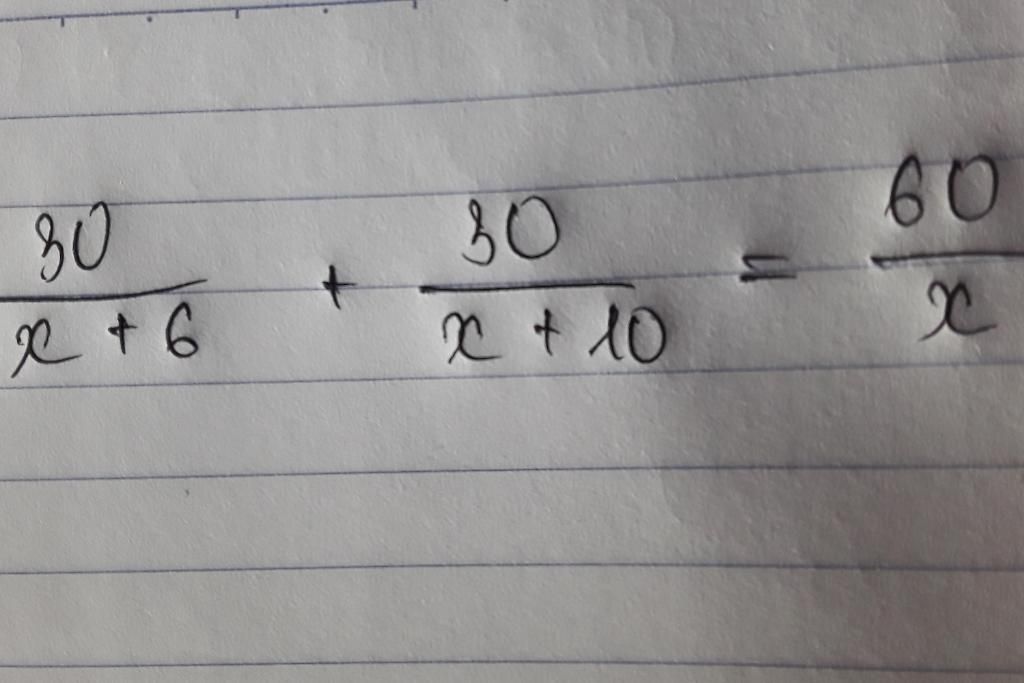 30/(x + 6) + 30/(x + 10) = 60/x